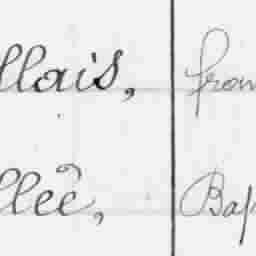 llais, fran
llée, Bap